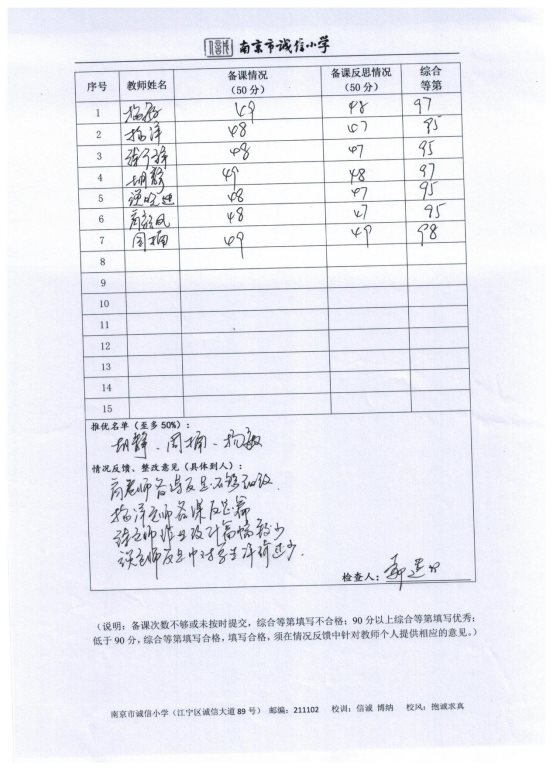 南京市诚信小学
序号 教师姓名 备课情况（50 分） 备课反思情况（50 分） 综合等第
1 49 48 97
2 杨泽 48 47 95
3 48 47 95
4 胡静 49 48 97
5 48 47 95
6 48 47 95
7 周楠 49 49 98
8
9
10
11
12
13
14
15
推优名单（至多 50%）：
胡静、周楠、杨敏
情况反馈、整改意见（具体到人）：
老师备课反思不够细致
杨泽老师备课反思 篇
老师作业设计篇幅较少
老师反思中对学生评价过少.
检查人：
（说明：备课次数不够或未按时提交，综合等第填写不合格；90 分以上综合等第填写优秀；
低于 90 分，综合等第填写合格，填写合格，须在情况反馈中针对教师个人提供相应的意见。）
南京市诚信小学（江宁区诚信大道 89 号） 邮编：211102 校训：信诚 博纳 校风：抱诚求真